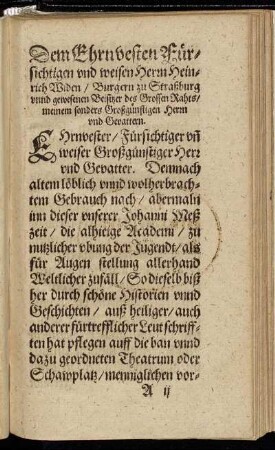 Dem Ehrnvesten Für-
sichtigen vnd weisen Herrn Hein-
rich Widen / Burgern zu Straßburg
vnnd gewesenen Beisitzer des Grossen Rahts /
meinem sonders Großgünstigen Herrn
vnd Gevattern.
EHrnvester / Fürsichtiger vñ
weiser Großgünstiger Herr
vnd Gevatter. Demnach
altem löblich vnnd wolherbrach-
tem Gebrauch nach / abermaln
inn dieser vnserer Johanni Meß
zeit / die alhieige Academi / zu
nutzlicher vbung der Jugendt / als
für Augen stellung allerhand
Weltlicher zufäll / So dieselb biß
her durch schöne Historien vnnd
Geschichten / auß heiliger / auch
anderer fürtrefflicher Leut schriff-
ten hat pflegen auff die ban vnnd
dazu geordneten Theatrum oder
Schawplatz / menniglichen vor-
A ij